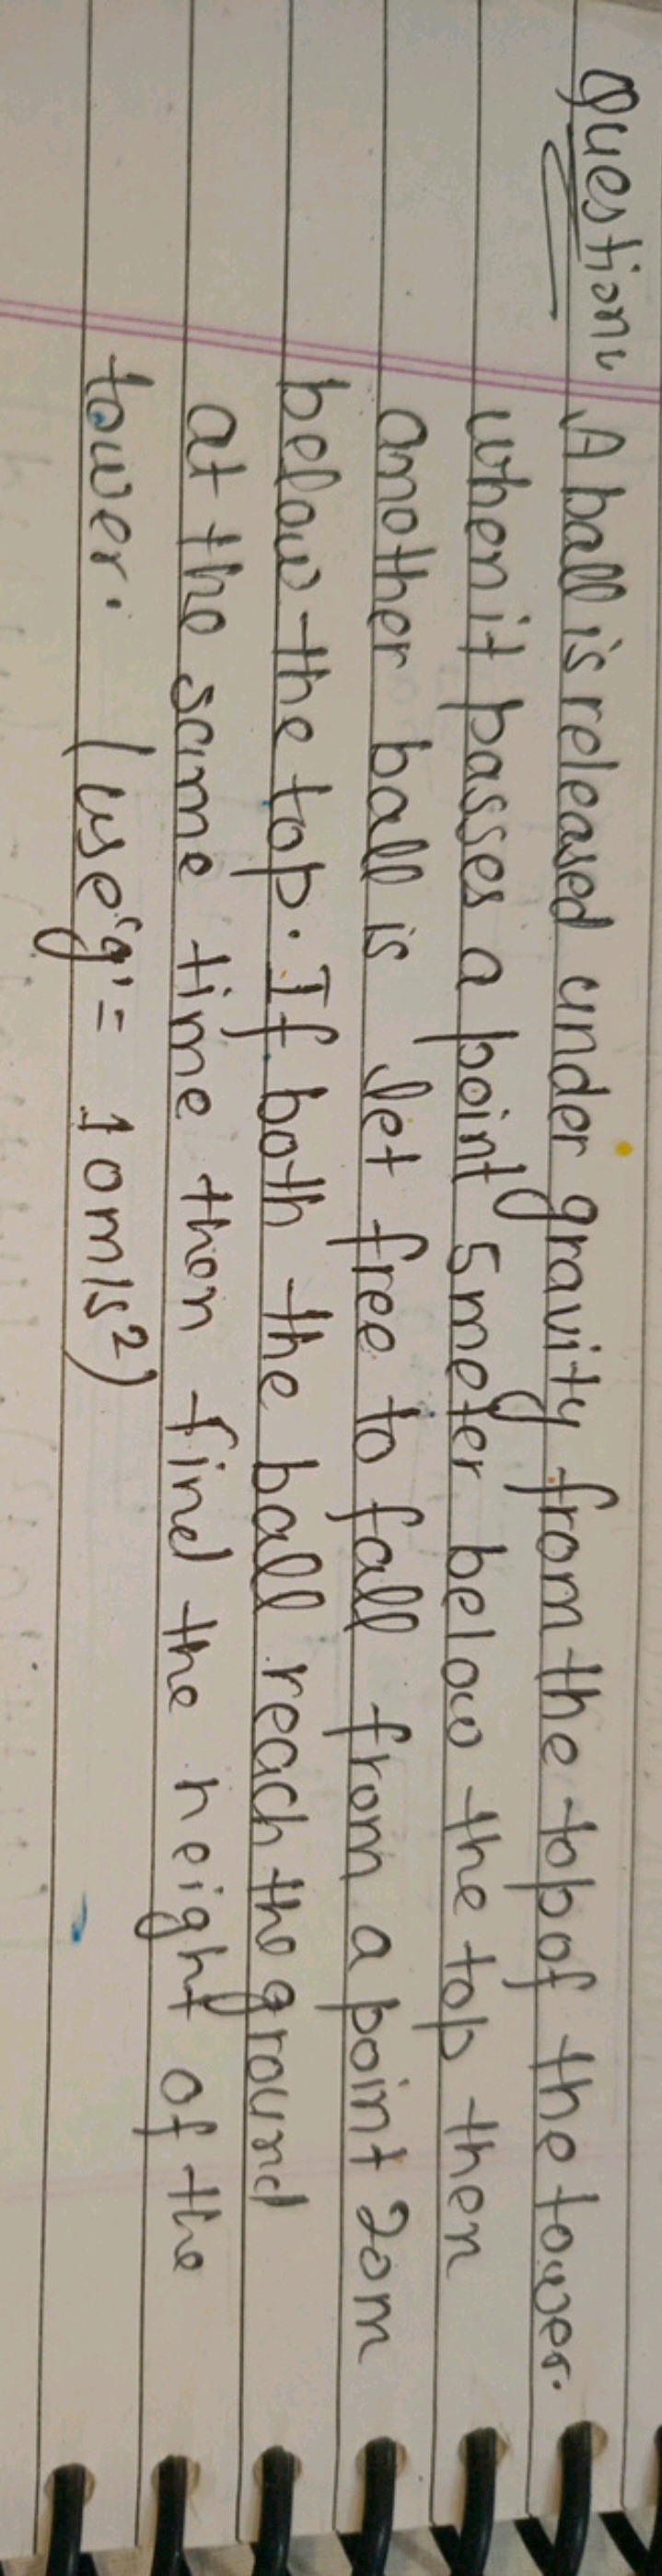 Question:- A ball is released under gravity from the top of the tower.
when it passes a point 5 meter below the top then
another ball is let free to fall from a point 20m
below the top. If both the ball reach the ground
at the same time then find the height of the
tower. (use 'g' = 10m/s²)